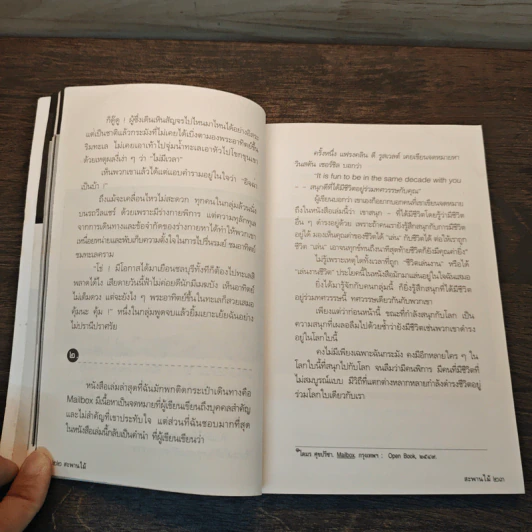 ก็ดีดู ! ผู้ซึ่งเดินเหินสัญจรไปไหนมาไหนได้อย่างอิสระ
แต่เป็นชาติแล้วกระมังที่ไม่เคยได้เบิ่งตามองพระอาทิตย์ขึ้น
ริมทะเล ไม่เคยเอาเท้าไปจุ่มน้ำทะเลเอาหัวไปโขกขุนเขา
ด้วยเหตุผลงี่เง่า ๆ ว่า "ไม่มีเวลา"
เห็นพวกเขาแล้วได้แต่แอบคำรามอยู่ในใจว่า "อิจฉา
เป็นบ้า !"
ถึงแม้จะเคลื่อนไหวไม่สะดวก ทุกคนในกลุ่มล้วนนั่ง
บนรถวีลแชร์ ด้วยเพราะมีร่างกายพิการ แต่ความทุลักทุเล
จากการเดินทางและข้อจำกัดของร่างกายหาได้ทำให้พวกเขา
เหนื่อยหน่ายและพับเก็บความตั้งใจในการไปรื่นรมย์ ชมอาทิตย์
ชมทะเลคราม
"โธ่ ! มีโอกาสได้มาเยือนชลบุรีทั้งทีก็ต้องไปทะเลสิ
พลาดได้ไง เสียดายวันนี้ฟ้าไม่ค่อยดีนักมีเมฆบัง เห็นอาทิตย์
ไม่เต็มดวง แต่จะยังไง ๆ พระอาทิตย์ขึ้นในทะเลก็สวยเสมอ
คุ้มนะ คุ้ม !" หนึ่งในกลุ่มพูดจบแล้วยิ้มเยาะเย้ยฉันอย่าง
ไม่ปรานีปราศรัย
๒
หนังสือเล่มล่าสุดที่ฉันมักพกติดกระเป๋าเดินทางคือ
Mailbox มีเนื้อหาเป็นจดหมายที่ผู้เขียนเขียนถึงบุคคลสำคัญ
และไม่สำคัญที่เขาประทับใจ แต่ส่วนที่ฉันชอบมากที่สุด
ในหนังสือเล่มนี้กลับเป็นคำนำ ที่ผู้เขียนเขียนว่า
๒๒๒ สะพานไม้
ครั้งหนึ่ง แฟรงคลิน ดี รูสเวลต์ เคยเขียนจดหมายหา
วินสตัน เชอร์ชิล บอกว่า
"It is fun to be in the same decade with you
– สนุกดีที่ได้มีชีวิตอยู่ร่วมทศวรรษกับคุณ"
ผู้เขียนบอกว่า เขาเองก็อยากบอกคนที่เขาเขียนจดหมาย
ถึงในหนังสือเล่มนี้ว่า เขาสนุก – ที่ได้มีชีวิตโดยรู้ว่ามีชีวิต
อื่น ๆ ดำรงอยู่ด้วย เพราะถ้าคนเรายังรู้สึกสนุกกับการมีชีวิต
อยู่ได้ มองเห็นคุณค่าของชีวิตได้ "เล่น" กับชีวิตได้ ต่อให้เราถูก
ชีวิต "เล่น" เอาจนจุกร์ทนถึงนาทีสุดท้ายชีวิตก็ยังมีคุณค่ายิ่ง*
ไม่รู้เพราะเหตุใดทั้งเวลาที่ถูก "ชีวิตเล่นงาน" หรือได้
"เล่นงานชีวิต" ประโยคนี้ในหนังสือมักแวะเล่นอยู่ในใจฉันเสมอ
ยิ่งได้มารู้จักกับคนกลุ่มนี้ ก็ยิ่งรู้สึกสนุกที่ได้มีชีวิต
อยู่ร่วมทศวรรษนี้ ทศวรรษเดียวกันกับพวกเขา
เพียงแต่ว่าก่อนหน้านี้ ขณะที่กำลังสนุกกับโลก เป็น
ความสนุกที่เผลอลืมไปด้วยซ้ำว่ายังมีชีวิตเช่นพวกเขาดำรง
อยู่ในโลกใบนี้
คงไม่มีเพียงเฉพาะฉันกระมัง คงมีอีกหลายใคร ๆ ใน
โลกใบนี้ที่สนุกไปกับโลก จนลืมว่ามีคนพิการ มีคนที่มีชีวิตที่
ไม่สมบูรณ์แบบ มีวิถีที่แตกต่างหลากหลายกำลังดำรงชีวิตอยู่
ร่วมโลกใบเดียวกับเรา
*โตมร ศุขปรีชา. Mailbox. กรุงเทพฯ : Open Book, ๒๕๔๙.
สะพานไม้ ๒๒๓